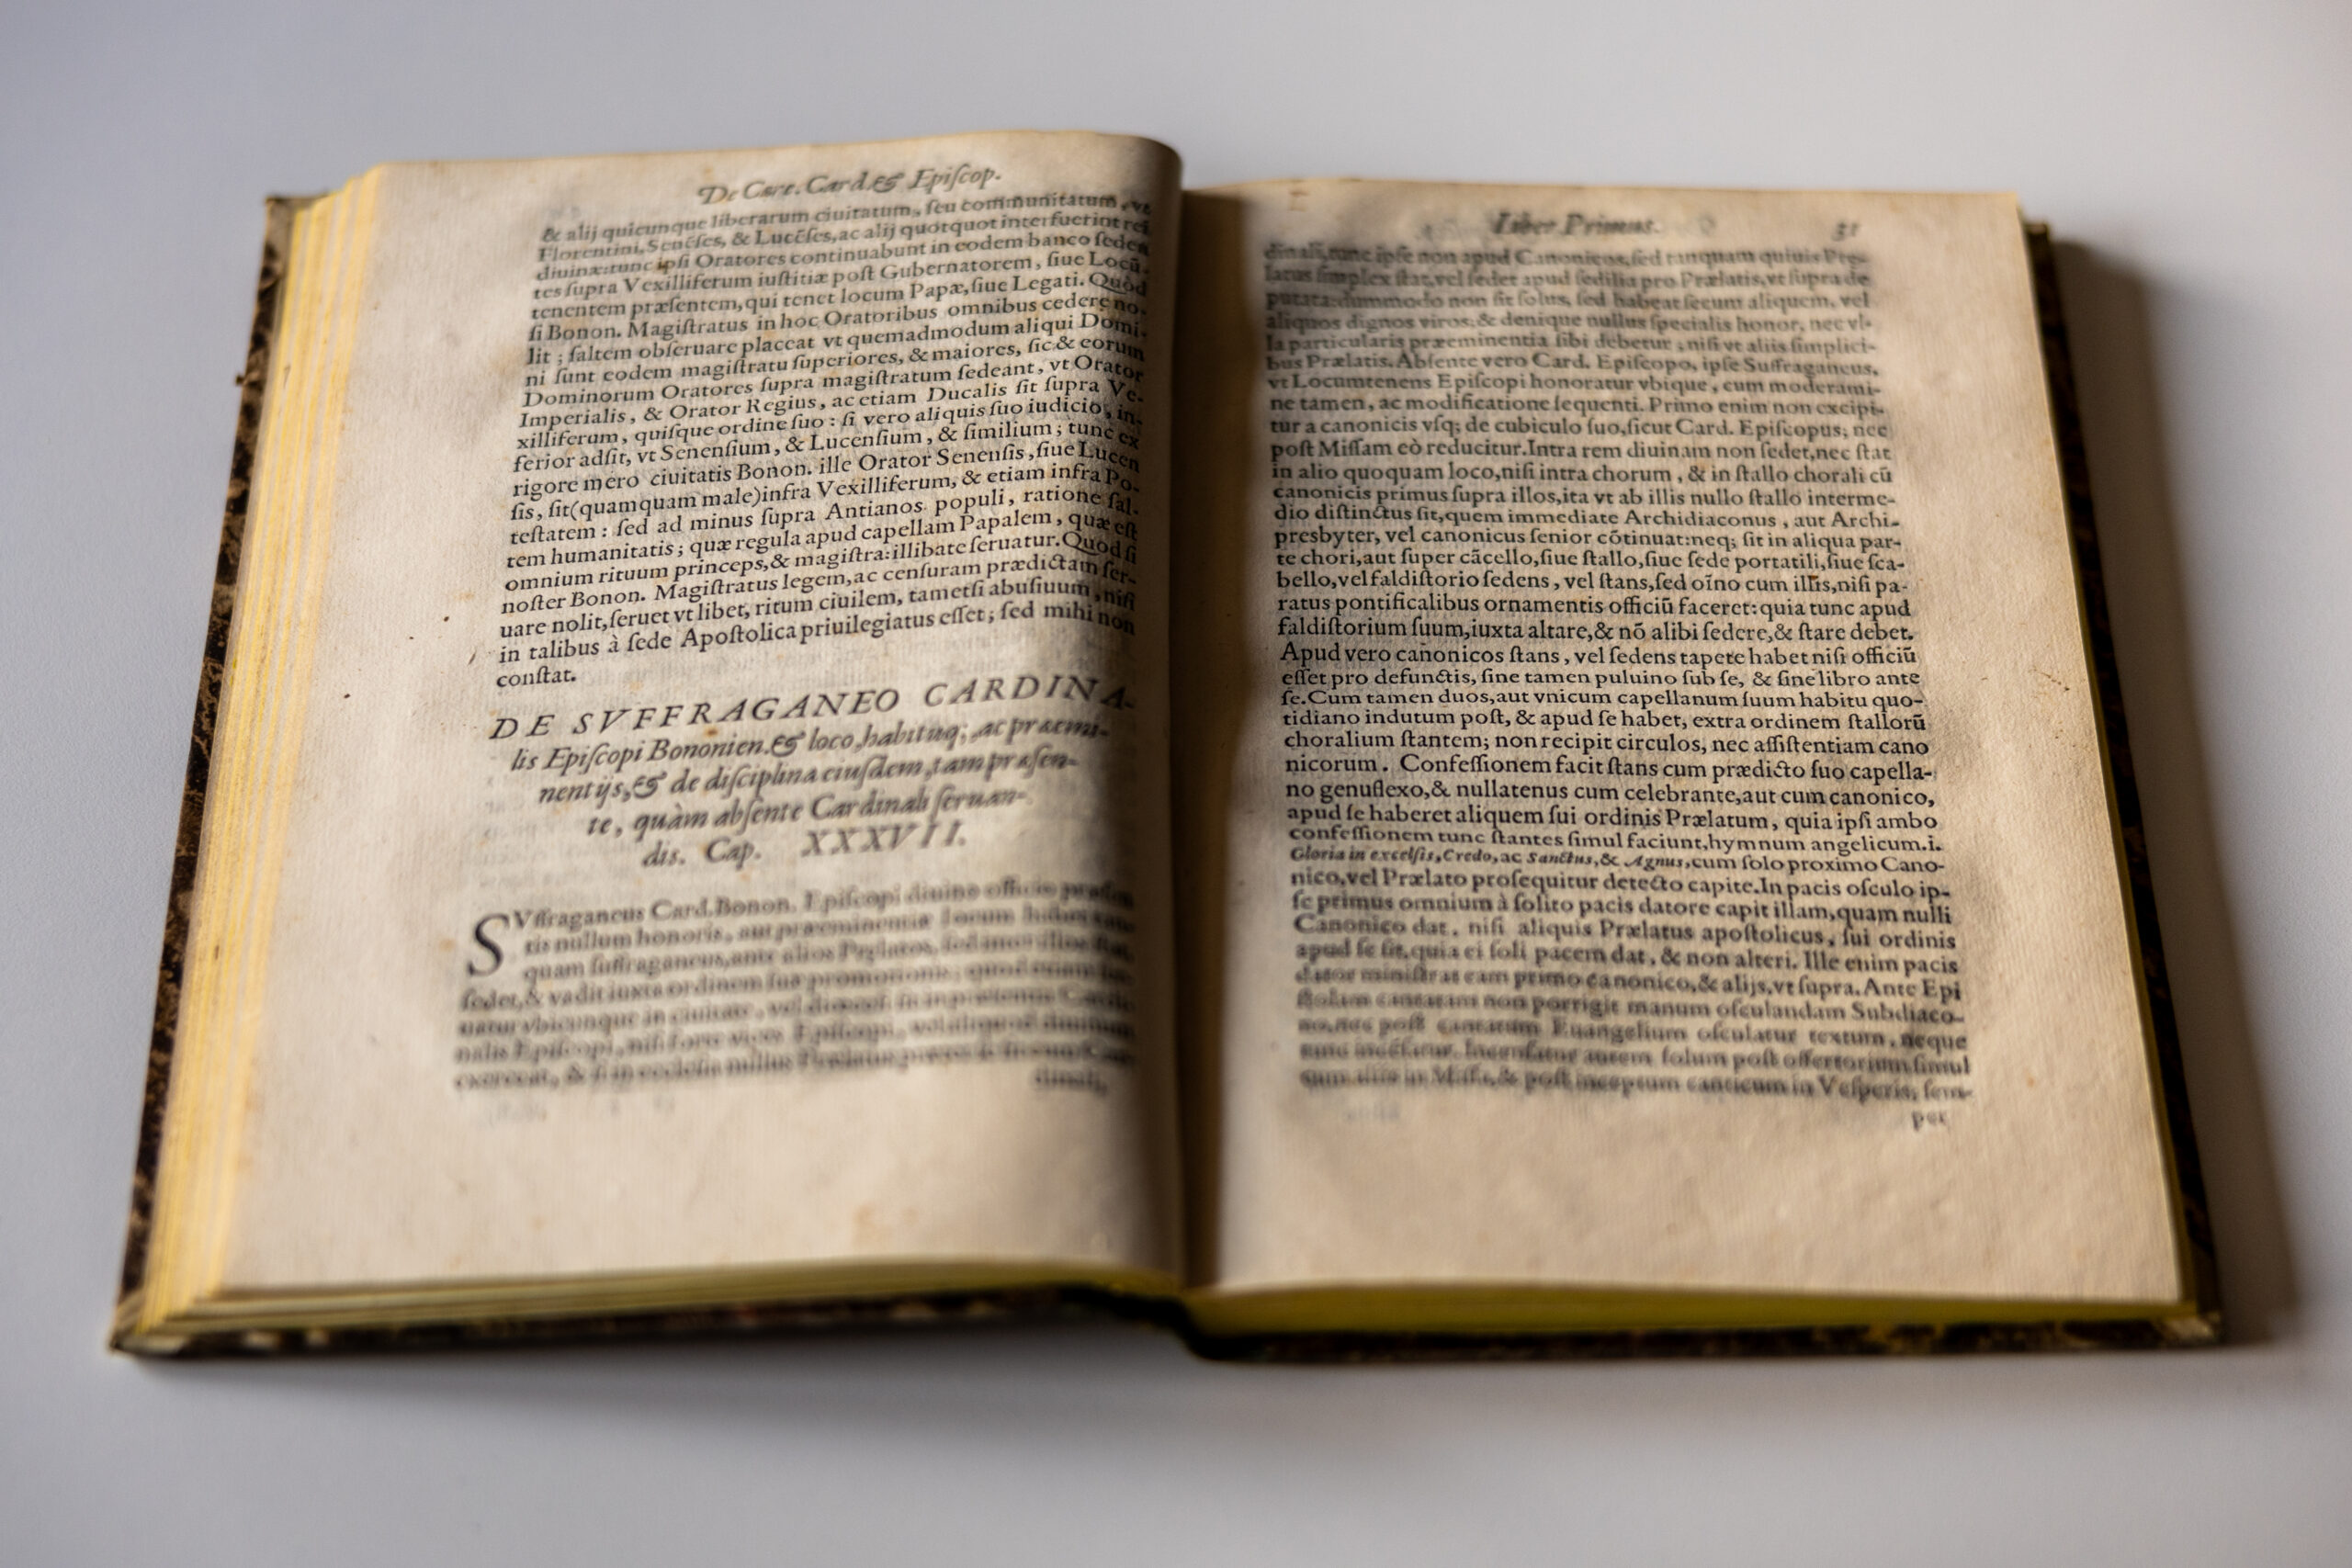 De Cære. Card. & Episcop.
& alij quicunque liberarum ciuitatum, seu communitatum, vt
Florentini, Senēses, & Lucēses, ac alij quotquot interfuerint rei
diuinæ: tunc ipsi Oratores continuabunt in eodem banco seden
tes supra Vexilliferum iustitiæ post Gubernatorem, siue Locū-
tenentem præsentem, qui tenet locum Papæ, siue Legati. Quòd
si Bonon. Magiſtratus in hoc Oratoribus omnibus cedere no-
lit; saltem obseruare placeat vt quemadmodum aliqui Domi-
ni sunt eodem magiſtratu superiores, & maiores, sic & eorum
Dominorum Oratores supra magiſtratum sedeant, vt Orator
Imperialis, & Orator Regius, ac etiam Ducalis sit supra Ve-
xilliferum, quisque ordine suo: si vero aliquis suo iudicio, in-
ferior adsit, vt Senensium, & Lucensium, & similium; tunc ex
rigore mero ciuitatis Bonon. ille Orator Senensis, siue Lucen
sis, sit (quamquam male) infra Vexilliferum, & etiam infra Po-
teſtatem: sed ad minus supra Antianos populi, ratione sal-
tem humanitatis; quæ regula apud capellam Papalem, quæ eſt
omnium rituum princeps, & magiſtra: illibate seruatur. Quòd si
noſter Bonon. Magiſtratus legem, ac censuram prædictam ser-
uare nolit, seruet vt libet, ritum ciuilem, tametsi abusiuum, nisi
in talibus à sede Apoſtolica priuilegiatus esset; sed mihi non
conſtat.
DE SVFFRAGANEO CARDINA-
lis Episcopi Bononien. & loco, habituq; ac præemi-
nentijs, & de disciplina eiusdem, tam præsen-
te, quàm absente Cardinali seruan-
dis. Cap. XXXVII.
SVffraganeus Card. Bonon. Episcopi diuino officio præsen
tis nullum honoris, aut præeminentiæ locum habet
quam suffraganeus, ante alios Prælatos, sed inter illos stat,
sedet, & vadit iuxta ordinem suæ promotionis; quod etiam
uatur vbicunque in ciuitate, vel
nalis Episcopi, nisi forte vices Episcopi, vel aliquod diuinum
exerceat, & si in ecclesia nullus Prælatus
dinali,
Liber Primus. 31
dinali, tunc ipse non apud Canonicos, sed tanquam quiuis Præ-
latus simplex ſtat, vel sedet apud sedilia pro Prælatis, vt supra de
putata: dummodo non sit solus, sed habeat secum aliquem, vel
aliquos dignos viros, & denique nullus specialis honor, nec vl-
la particularis præeminentia sibi debetur, nisi vt aliis simplici-
bus Prælatis. Absente vero Card. Episcopo, ipse Suffraganeus,
vt Locumtenens Episcopi honoratur vbique, cum moderami-
ne tamen, ac modificatione sequenti. Primo enim non excipi-
tur a canonicis vsq; de cubiculo suo, sicut Card. Episcopus; nec
poſt Missam eò reducitur. Intra rem diuinam non sedet, nec ſtat
in alio quoquam loco, nisi intra chorum, & in ſtallo chorali cū
canonicis primus supra illos, ita vt ab illis nullo ſtallo interme-
dio diſtinctus sit, quem immediate Archidiaconus, aut Archi-
presbyter, vel canonicus senior cōtinuat: neq; sit in aliqua par-
te chori, aut super cācello, siue ſtallo, siue sede portatili, siue sca-
bello, vel faldiſtorio sedens, vel ſtans, sed oīno cum illis, nisi pa-
ratus pontificalibus ornamentis officiū faceret: quia tunc apud
faldiſtorium suum, iuxta altare, & nō alibi sedere, & ſtare debet.
Apud vero canonicos ſtans, vel sedens tapete habet nisi officiū
esset pro defunctis, sine tamen puluino sub se, & sine libro ante
se. Cum tamen duos, aut vnicum capellanum suum habitu quo-
tidiano indutum poſt, & apud se habet, extra ordinem ſtallorū
choralium ſtantem; non recipit circulos, nec assiſtentiam cano
nicorum. Confessionem facit ſtans cum prædicto suo capella-
no genuflexo, & nullatenus cum celebrante, aut cum canonico,
apud se haberet aliquem sui ordinis Prælatum, quia ipsi ambo
confessionem tunc ſtantes simul faciunt, hymnum angelicum. i.
Gloria in excelsis, Credo, ac Sanctus, & Agnus, cum solo proximo Cano-
nico, vel Prælato prosequitur detecto capite. In pacis osculo ip-
se primus omnium à solito pacis datore capit illam, quam nulli
Canonico dat, nisi aliquis Prælatus apoſtolicus, sui ordinis
apud se sit, quia ei soli pacem dat, & non alteri. Ille enim pacis
dator miniſtrat eam primo canonico, & alijs, vt supra. Ante Epi
ſtolam cantatam non porrigit manum osculandam Subdiaco-
no, nec poſt cantatum Euangelium osculatur textum, neque
tunc incensatur. Incensatur autem solum poſt offertorium simul
cum aliis in Missa, & poſt inceptum canticum in Vesperis; sem-
per